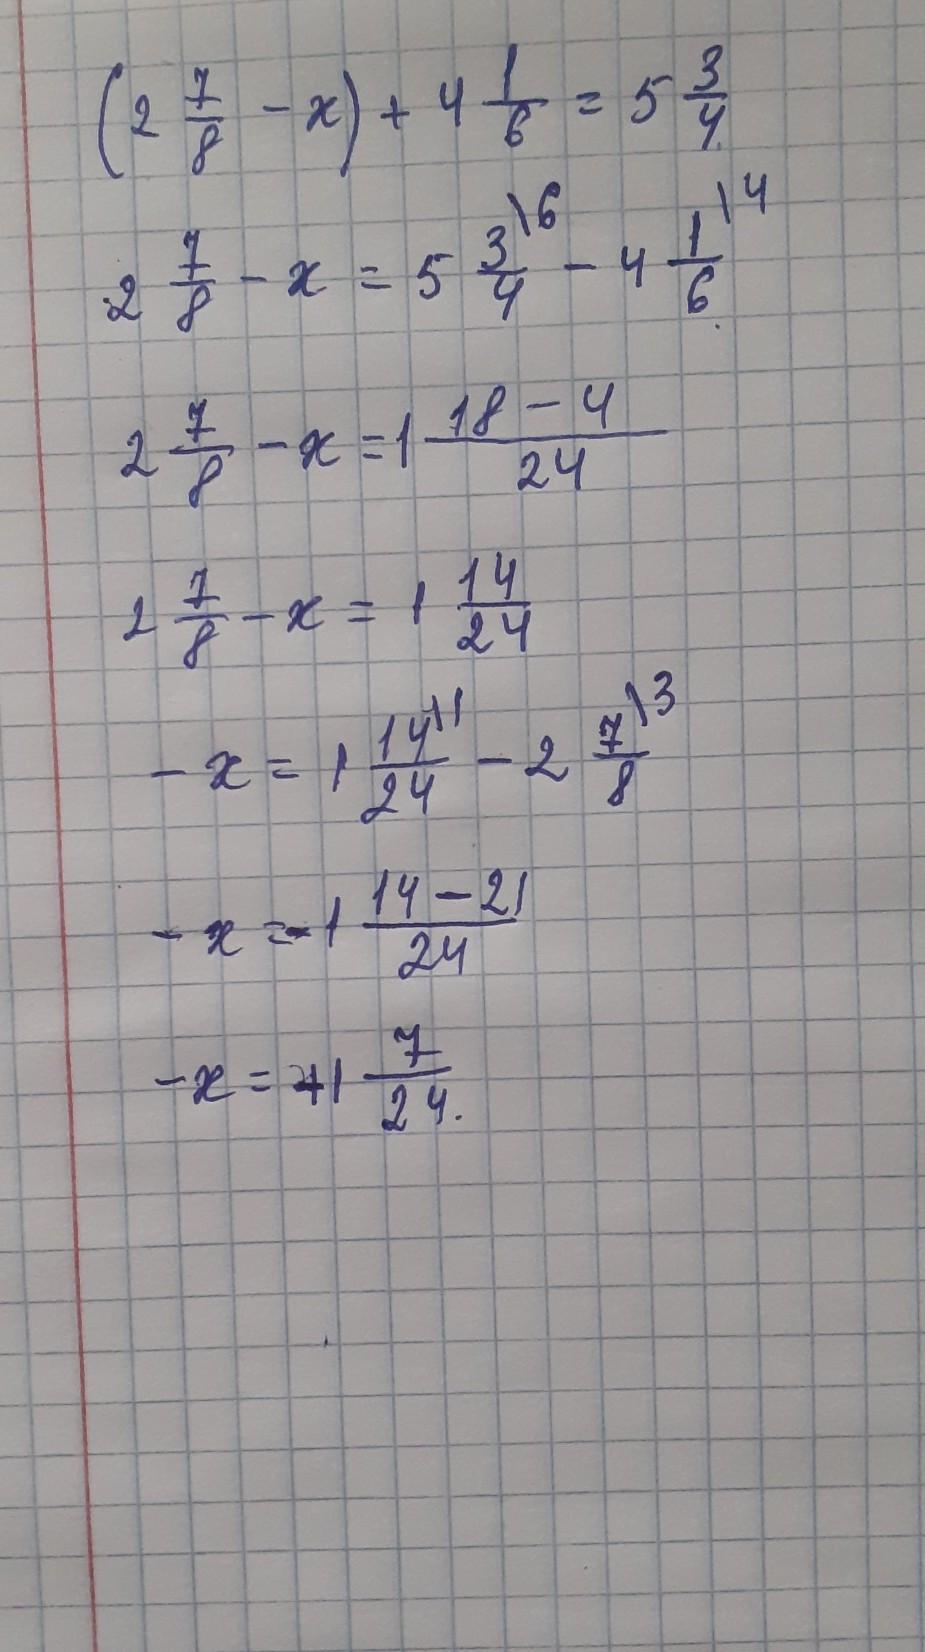 (2 7/8 - x) + 4 1/6 = 5 3/4
2 7/8 - x = 5 3/4 \6 - 4 1/6 \4
2 7/8 - x = 1 (18 - 4)/24
2 7/8 - x = 1 14/24
- x = 1 14/24 \1 - 2 7/8 \3
- x = -1 (14 - 21)/24
- x = +1 7/24.